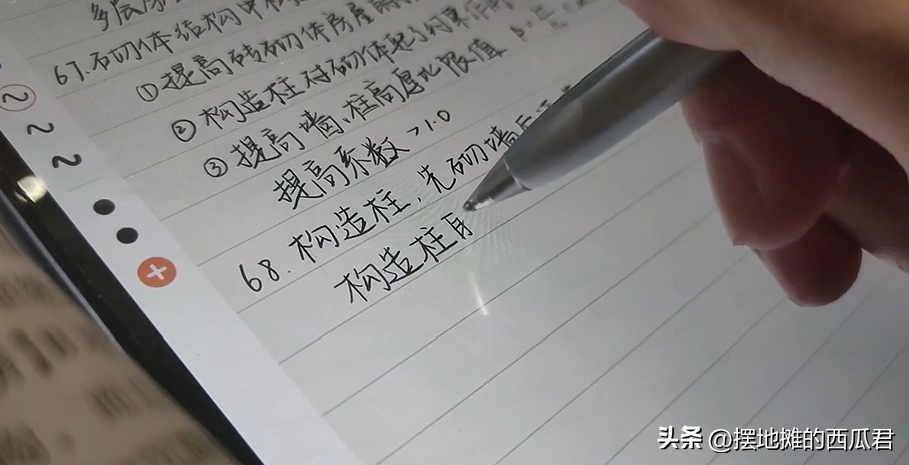 多层
67.石切体结构中
①提高砖砌体房屋
②构造柱对砌体起了约束作用
③提高墙、柱高厚比限值
提高系数>1.0
68.构造柱,先砌墙后
构造柱
头条 @摆地摊的西瓜君